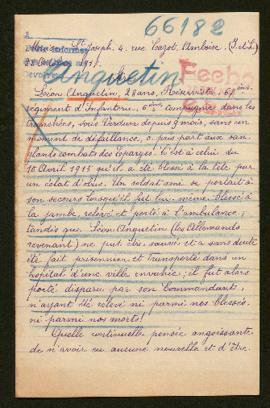 66182
St Joseph, 4, rue Cazot, Amboise (I.&L.)
Octobre 1915
Anquetin
Léon Anquetin, 28 ans, Réserviste,
régiment d'Infanterie, 6ème compagnie dans les
tranchées, sous Verdun depuis 9 mois, sans un
moment de défaillance, a pris part aux san-
glants combats des Eparges. C'est à celui du
10 Avril 1915 qu'il a été blessé à la tête, par
un éclat d'obus. Un soldat ami se portait à
son secours lorsqu'il fut lui-même blessé à
la jambe, relevé et porté à l'ambulance,
tandis que Léon Anquetin (les Allemands
revenant) ne put être sauvé et a sans doute
été fait prisonnier et transporté dans un
hôpital d'une ville envahie; il fut alors
porté disparu par son Commandant,
n'ayant été relevé ni parmi nos blessés,
ni parmi nos morts!
Quelle continuelle pensée angoissante
de n'avoir eu aucune nouvelle et d'être